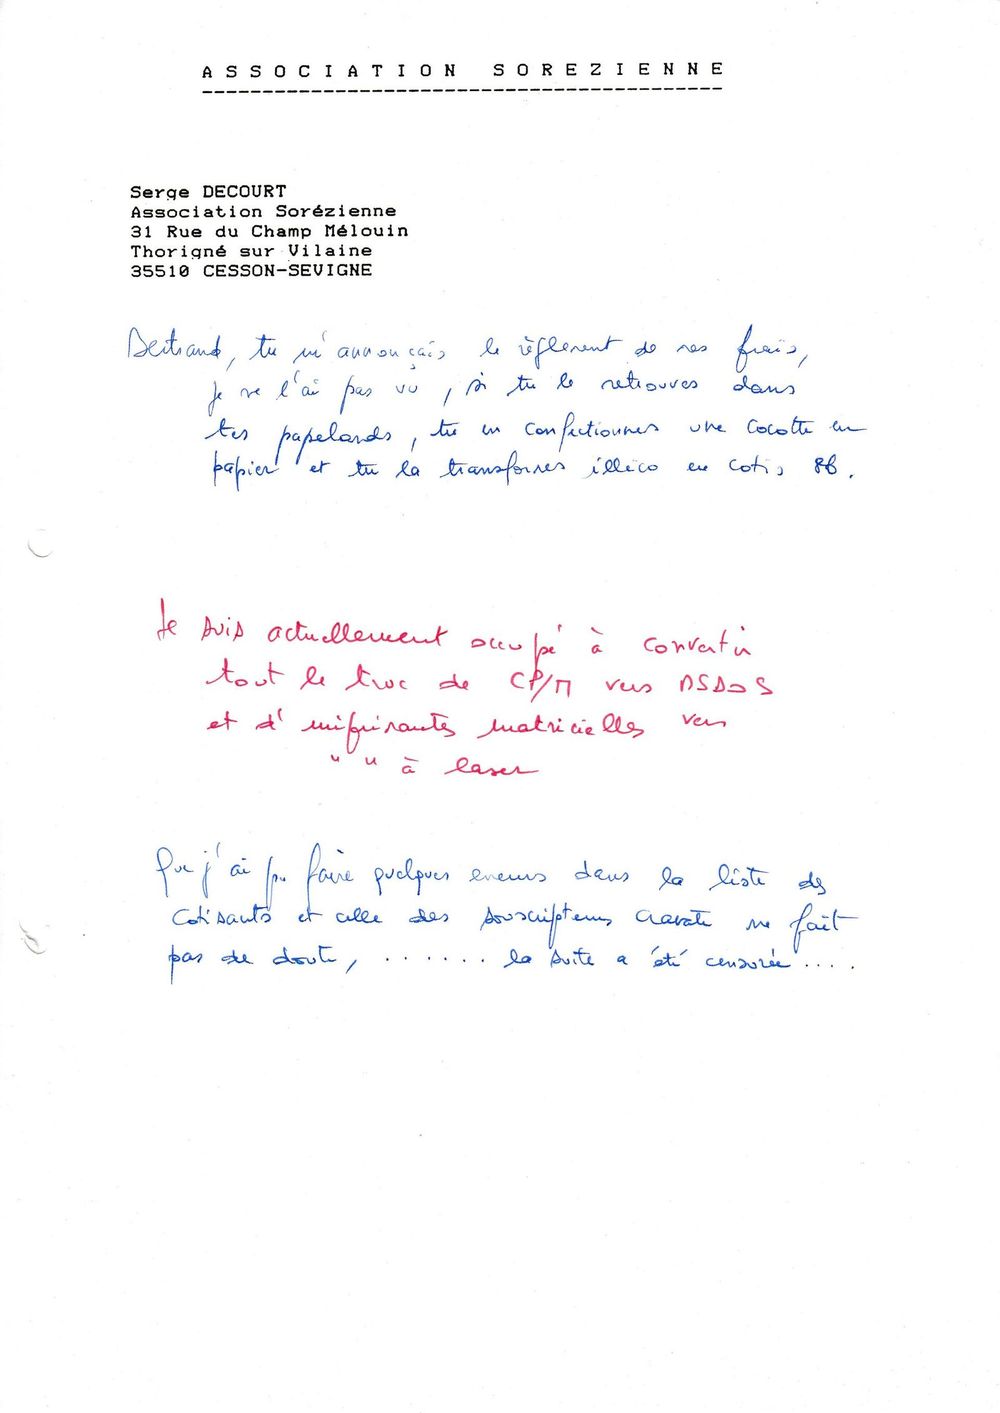 ASSOCIATION SOREZIENNE
Serge DECOURT
Association Sorézienne
31 Rue du Champ Mélouin
Thorigné sur Vilaine
35510 CESSON-SEVIGNE
Bertrand, tu m'annonçais le règlement de nes frais,
Je ne l'ai pas vu, si tu le retrouves dans
tes papelards, tu en confectionnes une cocotte en
papier et tu la transformes illico en cotis 86.
Je suis actuellement occupé à convertir
tout le truc de CP/M vers MSDOS
et d'imprimantes matricielles vers
" " à laser
Que j'ai pu faire quelques erreurs dans la liste des
cotisants et celle des souscripteurs cravate ne fait
pas de doute, ....... la suite a été censurée ....